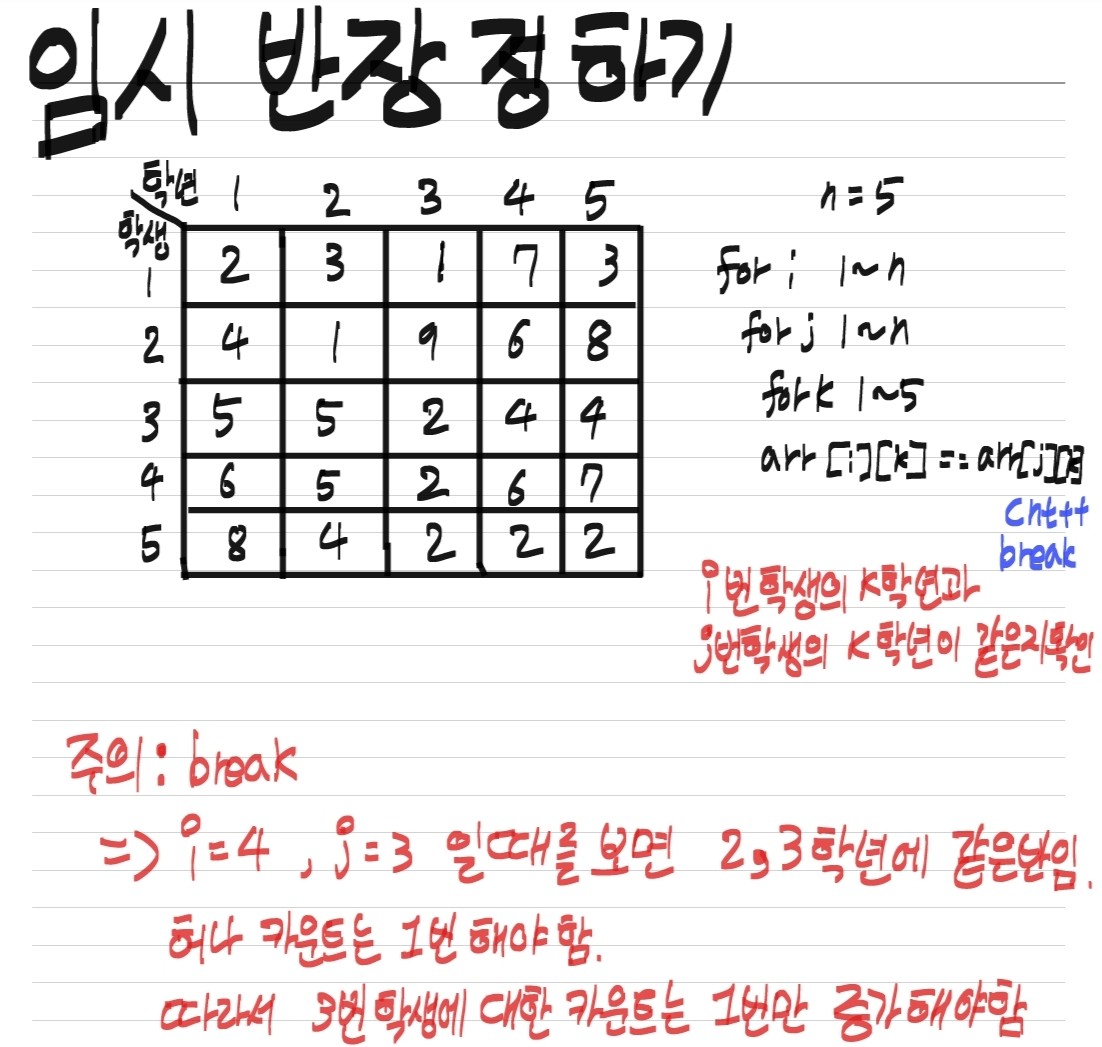 임시 반장 정하기
학년 1 2 3 4 5
학생
1 2 3 1 7 3
2 4 1 9 6 8
3 5 5 2 4 4
4 6 5 2 6 7
5 8 4 2 2 2
n = 5
for i 1~n
for j 1~n
for k 1~5
arr [i][k] == arr[j][k]
cnt++
break
i번학생의 K학년과
j번학생의 K학년이 같은지확인
주의: break
=> i=4 , j=3 일때를 보면 2,3학년에 같은반임.
허나 카운트는 1번 해야함.
따라서 3번학생에 대한 카운트는 1번만 증가해야함